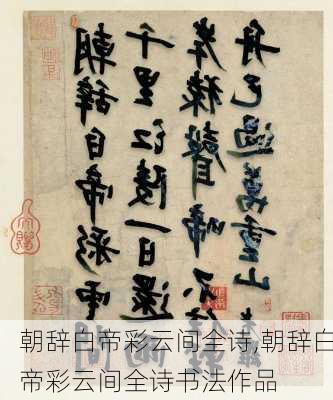 朝辭白啼彩雲間
千里江陵一日還兩
岸猿聲啼不住輕
舟已過萬重山
朝辞白帝彩云间全诗,朝辞白
帝彩云间全诗书法作品